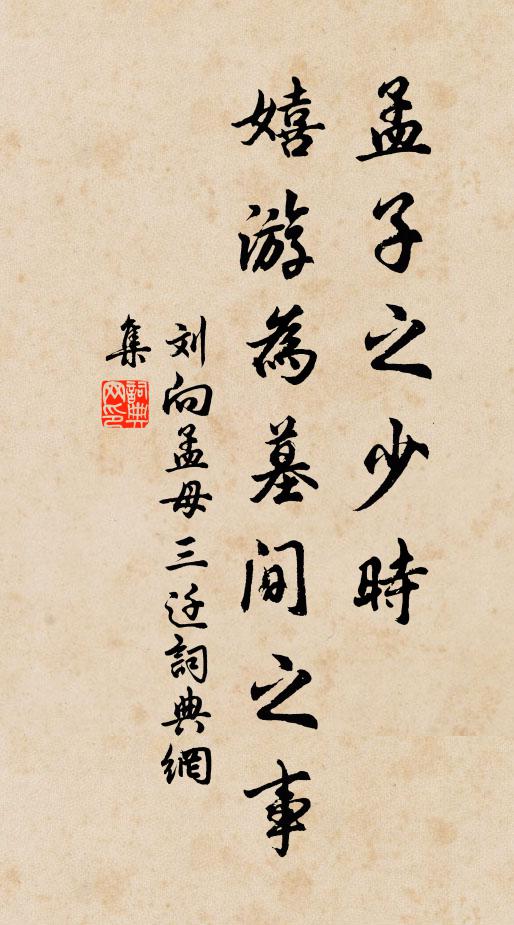 孟子之少時
嬉游為墓間之事
刘向孟母三迁詞典網
集
詞典
网印